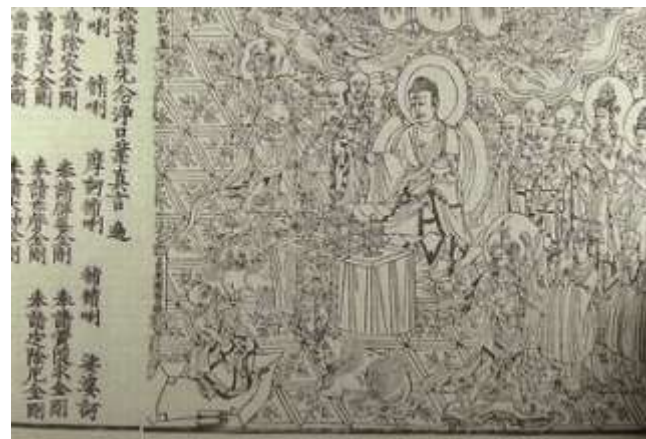 欲讀經先念淨口業真言 遍
脩唎 摩訶脩唎 脩脩唎 娑婆訶
請除灾金剛 奉請辟毒金剛 奉請黃隨求金剛
請 金剛 奉請 聲金剛 奉請定除厄金剛
請紫賢金剛 奉請大神金剛